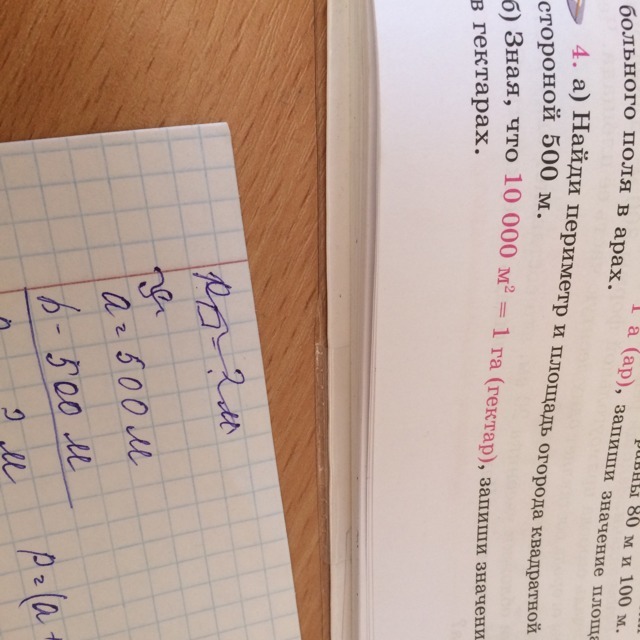 равны 80 м и 100 м.
1 а (ар), запиши значение площ
больного поля в арах.
4. а) Найди периметр и площадь огорода квадратной
стороной 500 м.
б) Зная, что 10 000 м² = 1 га (гектар), запиши значени
в гектарах.
P□-?м
a = 500 м
b - 500 м
? м
P = (a +